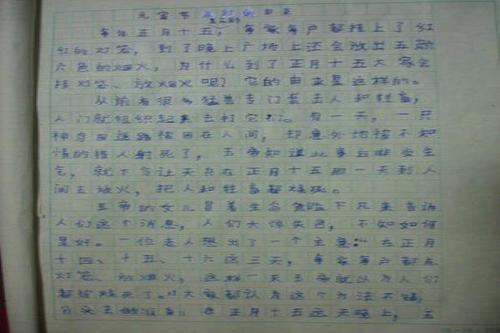 元宵节点灯的由来
每年正月十五，家家户户都挂上了红
红的灯笼，到了晚上广场上还会放出五颜
六色的烟火，为什么到了正月十五大家会
挂灯笼、放烟火呢？它的由来是这样的。
从前有很多猛兽专门袭击人和牲畜，
人们就组织起来去打它们。有一天，一只
神鸟因迷路被困在人间，却意外地被不知
情的猎人射死了，玉帝知道此事后非常生
气，就下令让天兵在正月十五那一天到人
间去放火，把人和牲畜都烧死。
玉帝的女儿冒着生命危险下凡来告诉
人们这个消息，人们大惊失色，不知如何
是好。一位老人想出了一个主意：“在正月
十四、十五、十六这三天，家家户户都点
灯笼、放烟火，这样一来玉帝就以为人们
都被烧死了。”大家都认为这个办法不错，
分头去做准备。在正月十五这天晚上，玉